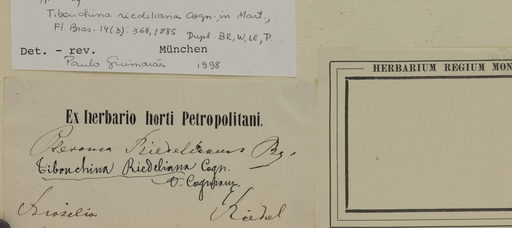 Tibouchina riedeliana Cogn. in Mart.,
Fl. Bras. 14(3): 368, 1885 Dupl. BR, W, LE, P.
Det. - rev. München
Paulo Guimarães 1998
HERBARIUM REGIUM MON
Ex herbario horti Petropolitani.
Pleroma Riedelianum Bg.
Tibouchina Riedeliana Cogn.
Brasilia Riedel